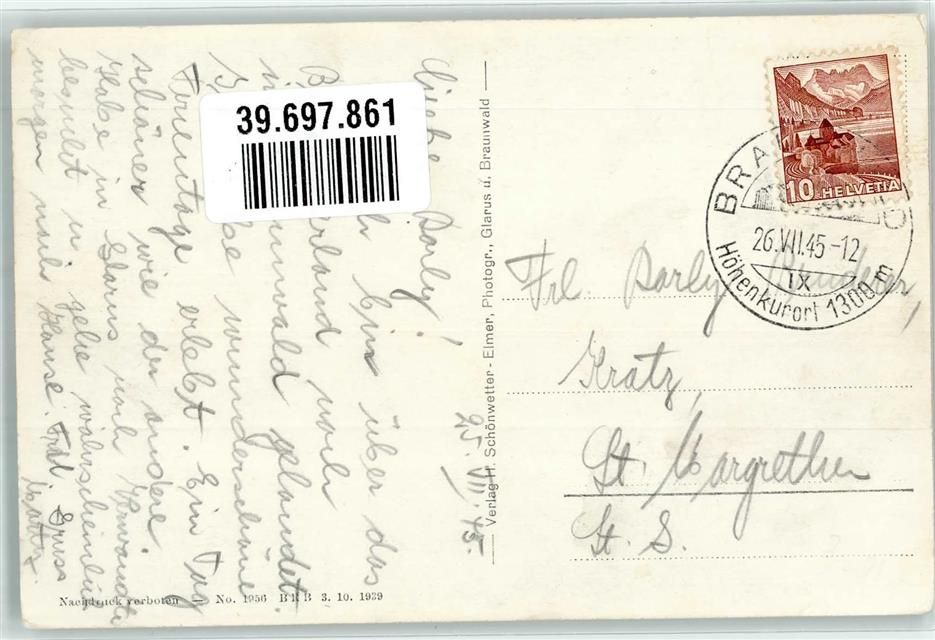 25. VII. 45.
Liebe Dorly!
Ich bin über das
B erland nach
Braunwald gelandet.
habe wunderschöne
Ferientage erlebt. Ein Tag
schöner wie der andere.
Habe in Glarus noch Verwandte
besucht u. gehe wahrscheinlich
morgen nach Hause. Frdl. Gruss
39.697.861
Verlag H. Schönwetter-Elmer, Photogr., Glarus u. Braunwald
10 HELVETIA
BRA D
26.VII.45-12
IX
Höhenkurort 1300 m
Frl. Dorly
Kratz,
St. Margrethen
Kt. S.
Nachdruck verboten — No. 1956 BRB 3. 10. 1939